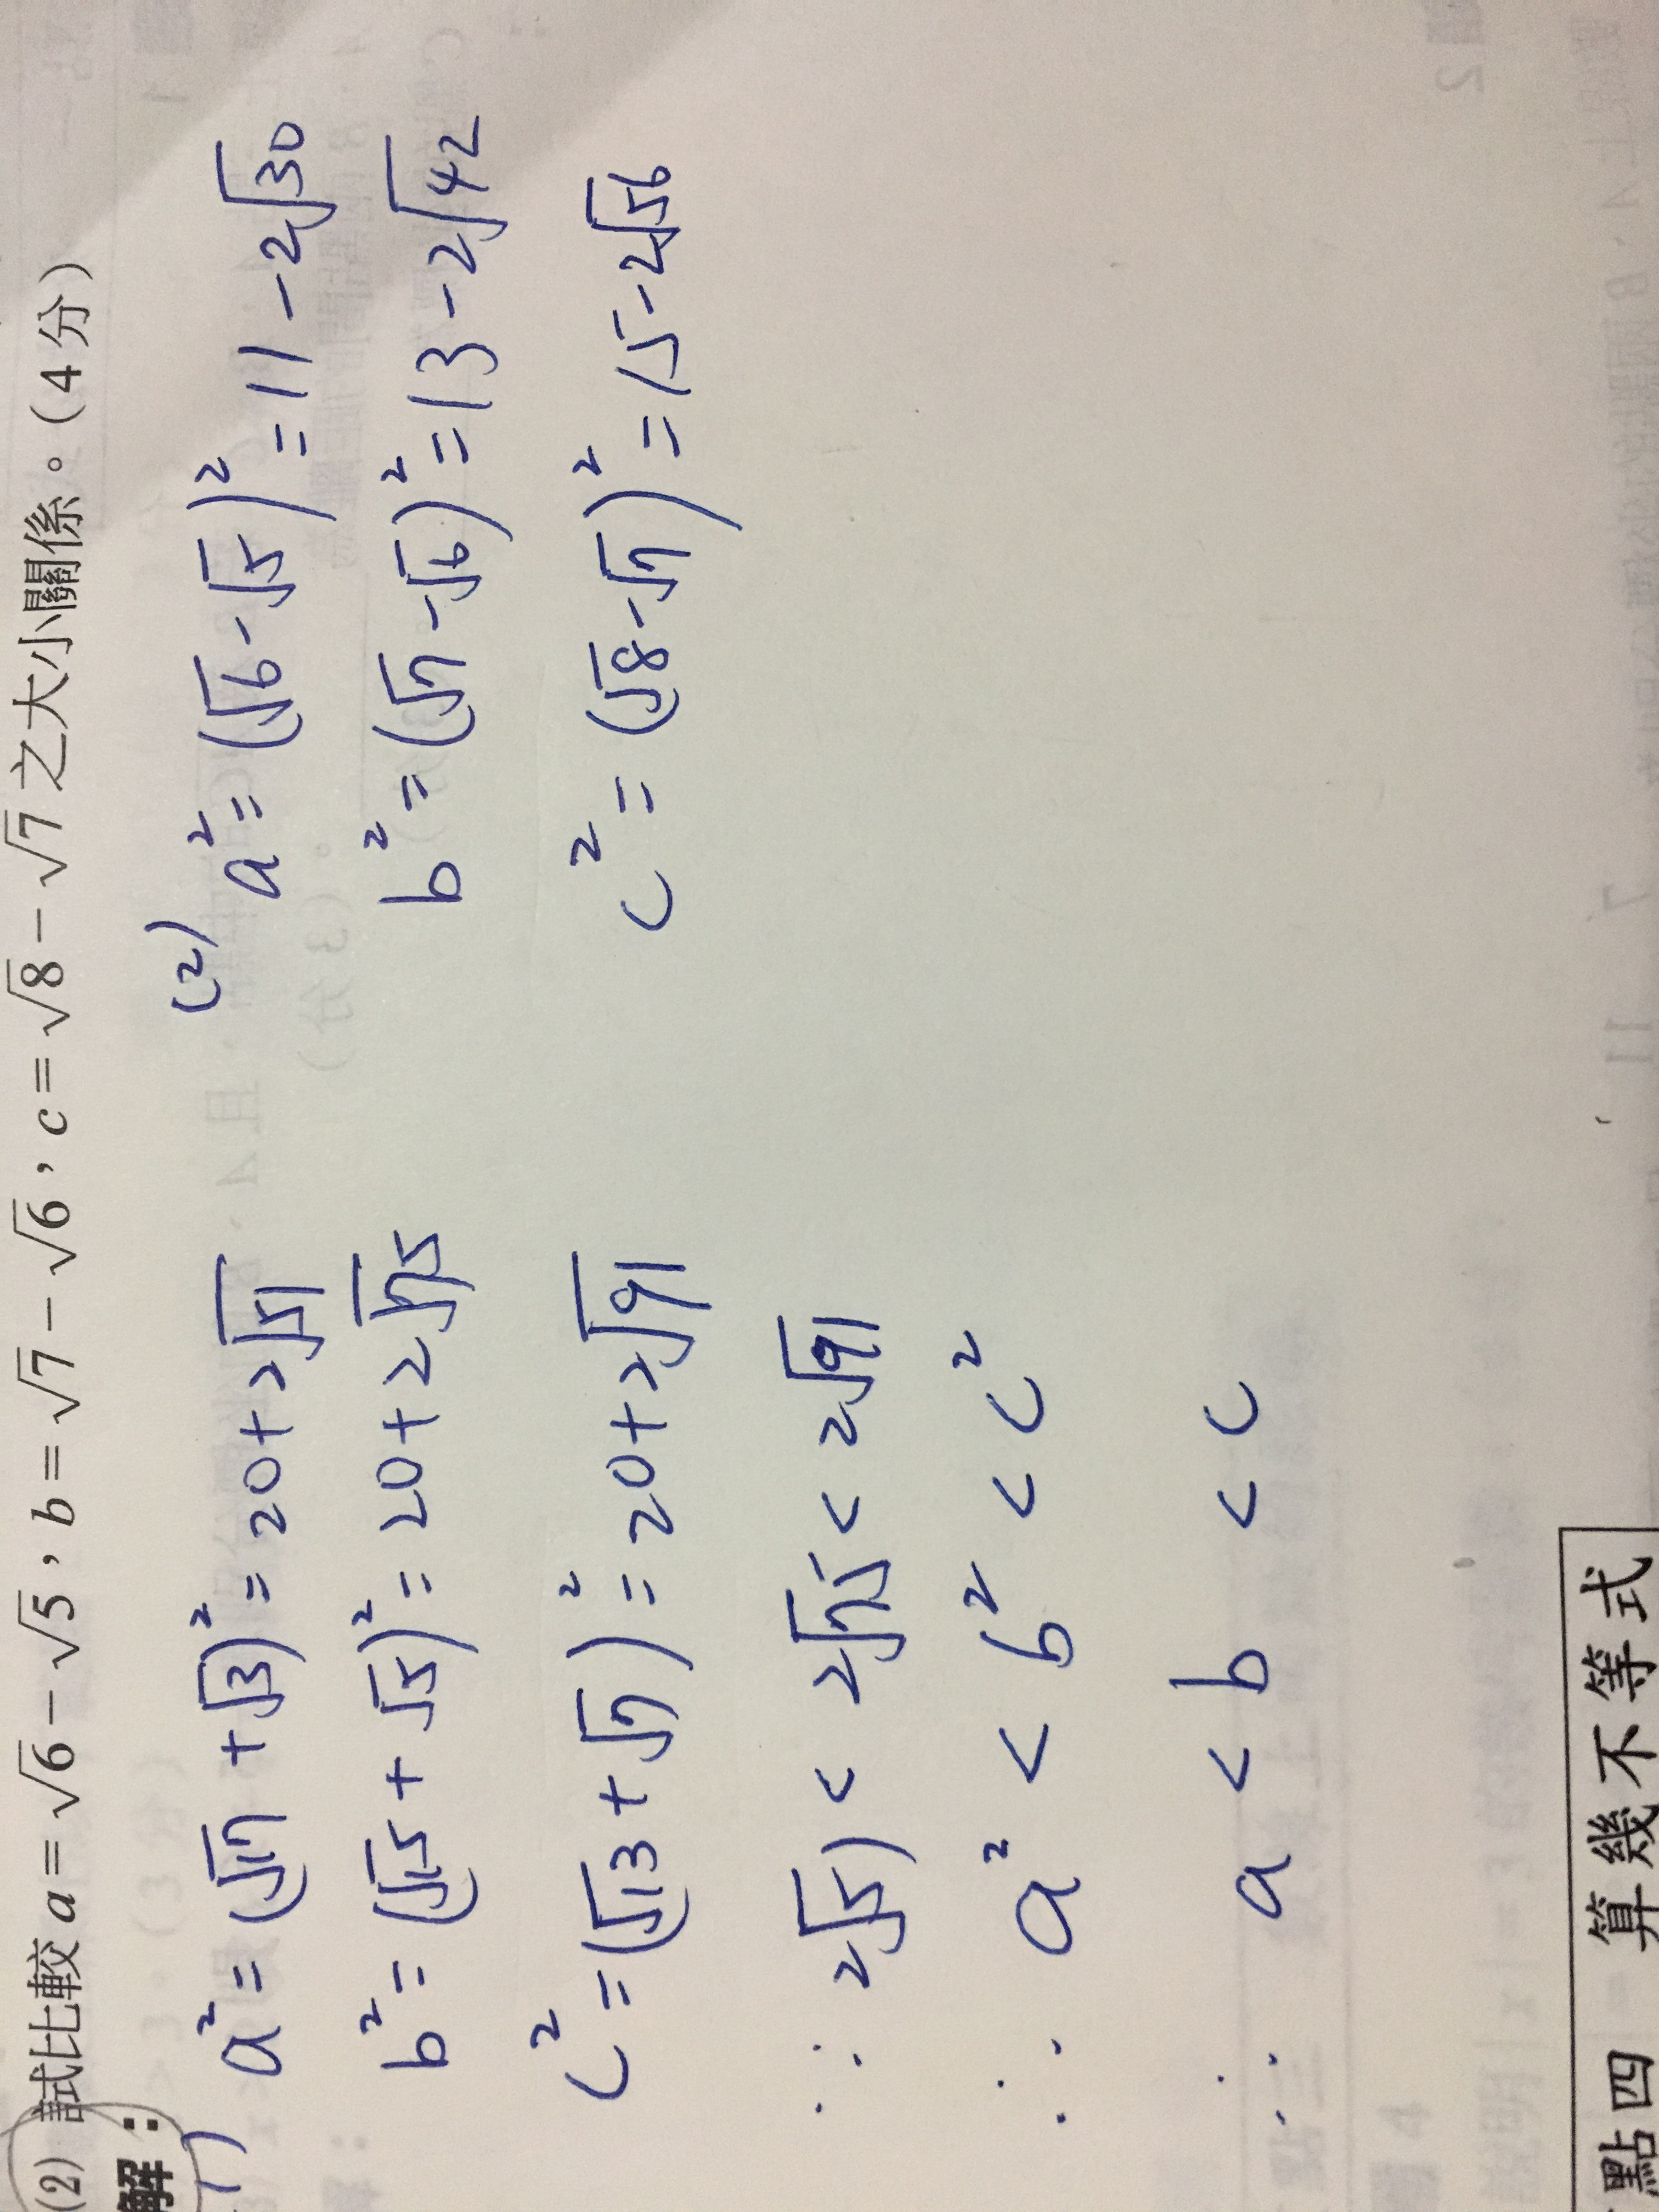 (2) 試比較 a=√6-√5，b=√7-√6，c=√8-√7 之大小關係。(4分)
解：
(1) a²=(√17+√3)²=20+2√51
b²=(√15+√5)²=20+2√75
c²=(√13+√7)²=20+2√91
∵ 2√51<2√75<2√91
∴ a²<b²<c²
∴ a<b<c
(2) a²=(√6-√5)²=11-2√30
b²=(√7-√6)²=13-2√42
c²=(√8-√7)²=15-2√56
點四 算幾不等式